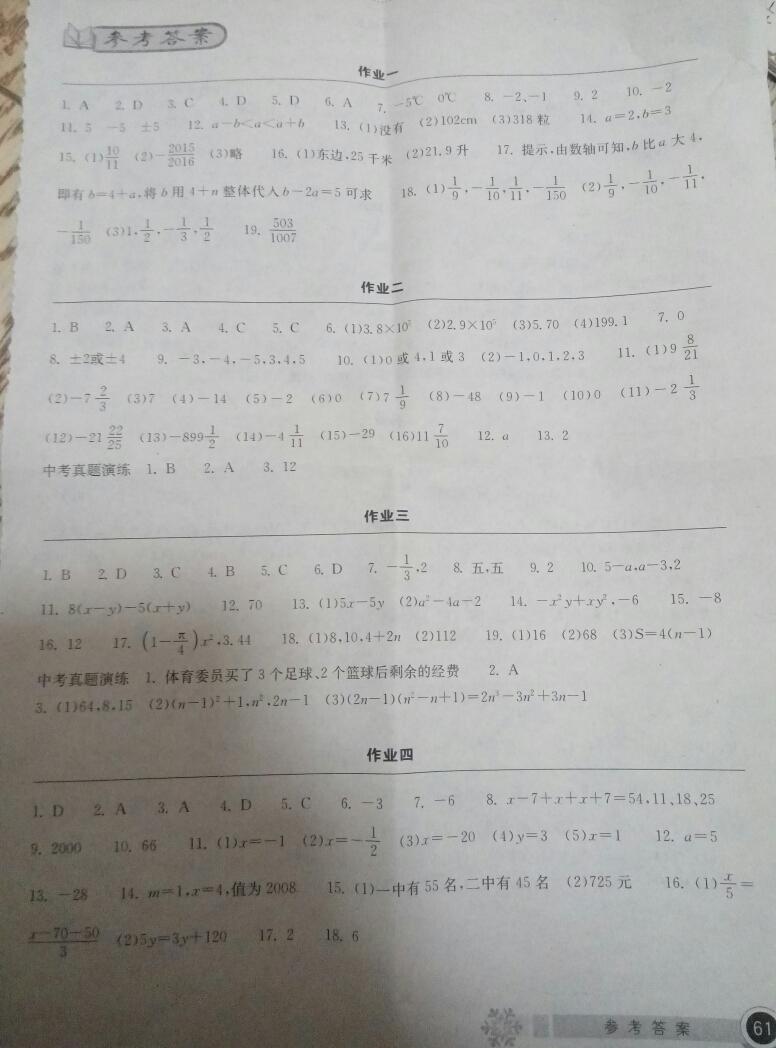 参考答案
作业一
1. A 2. D 3. C 4. D 5. D 6. A 7. -5℃ 0℃ 8. -2、-1 9. 2 10. -2
11. 5 -5 ±5 12. a-b<a<a+b 13. (1)没有 (2)102cm (3)318 粒 14. a=2,b=3
15. (1)10/11 (2)-2015/2016 (3)略 16. (1)东边,25 千米 (2)21.9 升 17. 提示,由数轴可知,b 比 a 大 4,
即有 b=4+a,将 b 用 4+n 整体代入 b-2a=5 可求 18. (1)1/9,-1/10,1/11,-1/150 (2)1/9,-1/10,-1/11,
-1/150 (3)1,1/2,-1/3,1/2 19. 503/1007
作业二
1. B 2. A 3. A 4. C 5. C 6. (1)3.8×10 (2)2.9×10⁵ (3)5.70 (4)199.1 7. 0
8. ±2或±4 9. -3,-4,-5,3,4,5 10. (1)0 或 4,1 或 3 (2)-1,0,1,2,3 11. (1)9 8/21
(2)-7 2/3 (3)7 (4)-14 (5)-2 (6)0 (7)7 1/9 (8)-48 (9)-1 (10)0 (11)-2 1/3
(12)-21 22/25 (13)-899 1/2 (14)-4 1/11 (15)-29 (16)11 7/10 12. a 13. 2
中考真题演练 1. B 2. A 3. 12
作业三
1. B 2. D 3. C 4. B 5. C 6. D 7. -1/3,2 8. 五,五 9. 2 10. 5-a,a-3,2
11. 8(x-y)-5(x+y) 12. 70 13. (1)5x-5y (2)a²-4a-2 14. -x²y+xy²,-6 15. -8
16. 12 17. (1-π/4)x²,3.44 18. (1)8,10,4+2n (2)112 19. (1)16 (2)68 (3)S=4(n-1)
中考真题演练 1. 体育委员买了 3 个足球、2 个篮球后剩余的经费 2. A
3. (1)64,8,15 (2)(n-1)²+1,n²,2n-1 (3)(2n-1)(n²-n+1)=2n³-3n²+3n-1
作业四
1. D 2. A 3. A 4. D 5. C 6. -3 7. -6 8. x-7+x+x+7=54,11、18、25
9. 2000 10. 66 11. (1)x=-1 (2)x=-1/2 (3)x=-20 (4)y=3 (5)x=1 12. a=5
13. -28 14. m=1,x=4,值为 2008 15. (1)一中有 55 名,二中有 45 名 (2)725 元 16. (1)x/5=
x-70-50/3 (2)5y=3y+120 17. 2 18. 6
参考答案 61